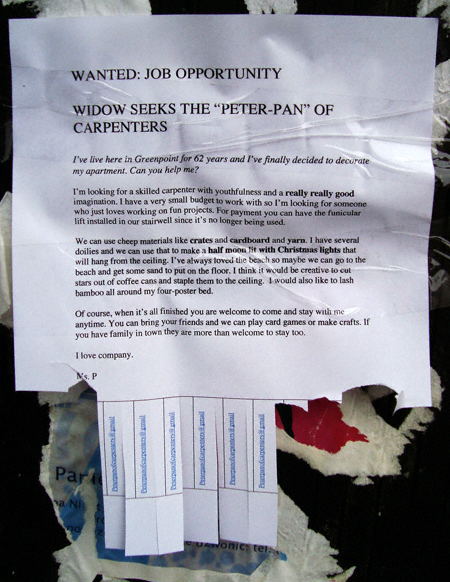 WANTED: JOB OPPORTUNITY
WIDOW SEEKS THE “PETER-PAN” OF
CARPENTERS
I've live here in Greenpoint for 62 years and I've finally decided to decorate
my apartment. Can you help me?
I'm looking for a skilled carpenter with youthfulness and a really really good
imagination. I have a very small budget to work with so I'm looking for someone
who just loves working on fun projects. For payment you can have the funicular
lift installed in our stairwell since it's no longer being used.
We can use cheep materials like crates and cardboard and yarn. I have several
doilies and we can use that to make a half moon lit with Christmas lights that
will hang from the ceiling. I've always loved the beach so maybe we can go to the
beach and get some sand to put on the floor. I think it would be creative to cut
stars out of coffee cans and staple them to the ceiling. I would also like to lash
bamboo all around my four-poster bed.
Of course, when it's all finished you are welcome to come and stay with me
anytime. You can bring your friends and we can play card games or make crafts. If
you have family in town they are more than welcome to stay too.
I love company.
Ms. P
Peterpanofcarpenters@gmail
Peterpanofcarpenters@gmail
Peterpanofcarpenters@gmail
Peterpanofcarpenters@gmail
Peterpanofcarpenters@gmail
Peterpanofcarpenters@gmail
Par
tel.